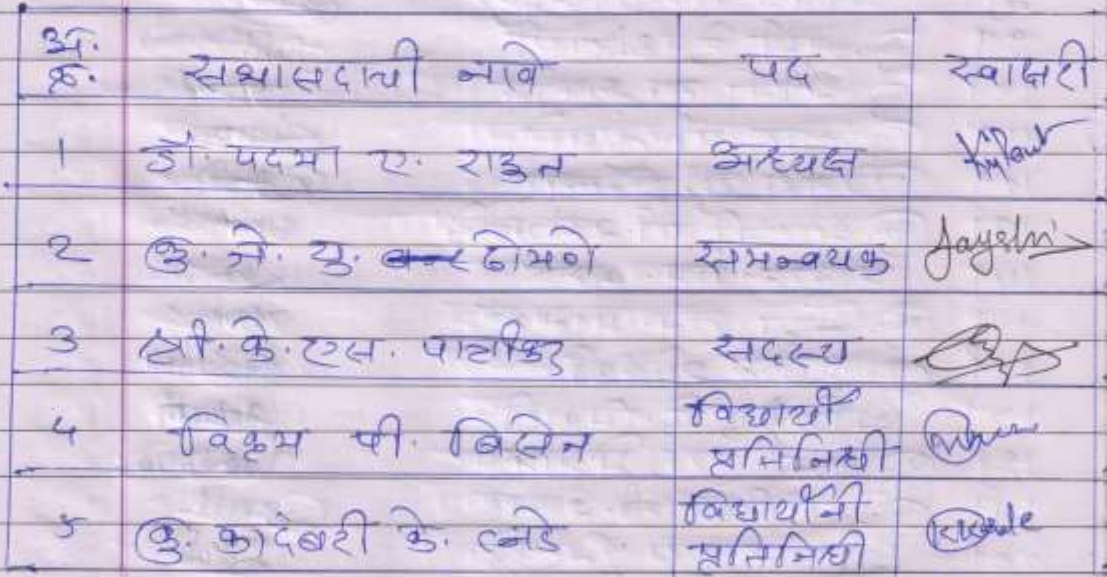 अ.
क्र. सभासदाची नावे पद स्वाक्षरी
1 डॉ. पदमा ए. राऊत अध्यक्ष
2 कु. जे. यु. ढोमणे समन्वयक Jayshri
3 श्री. के. एस. पालीकर सदस्य
4 विक्रम पी. बिसेन विद्यार्थी
प्रतिनिधी
5 कु. कादंबरी के. विद्यार्थीनी
प्रतिनिधी